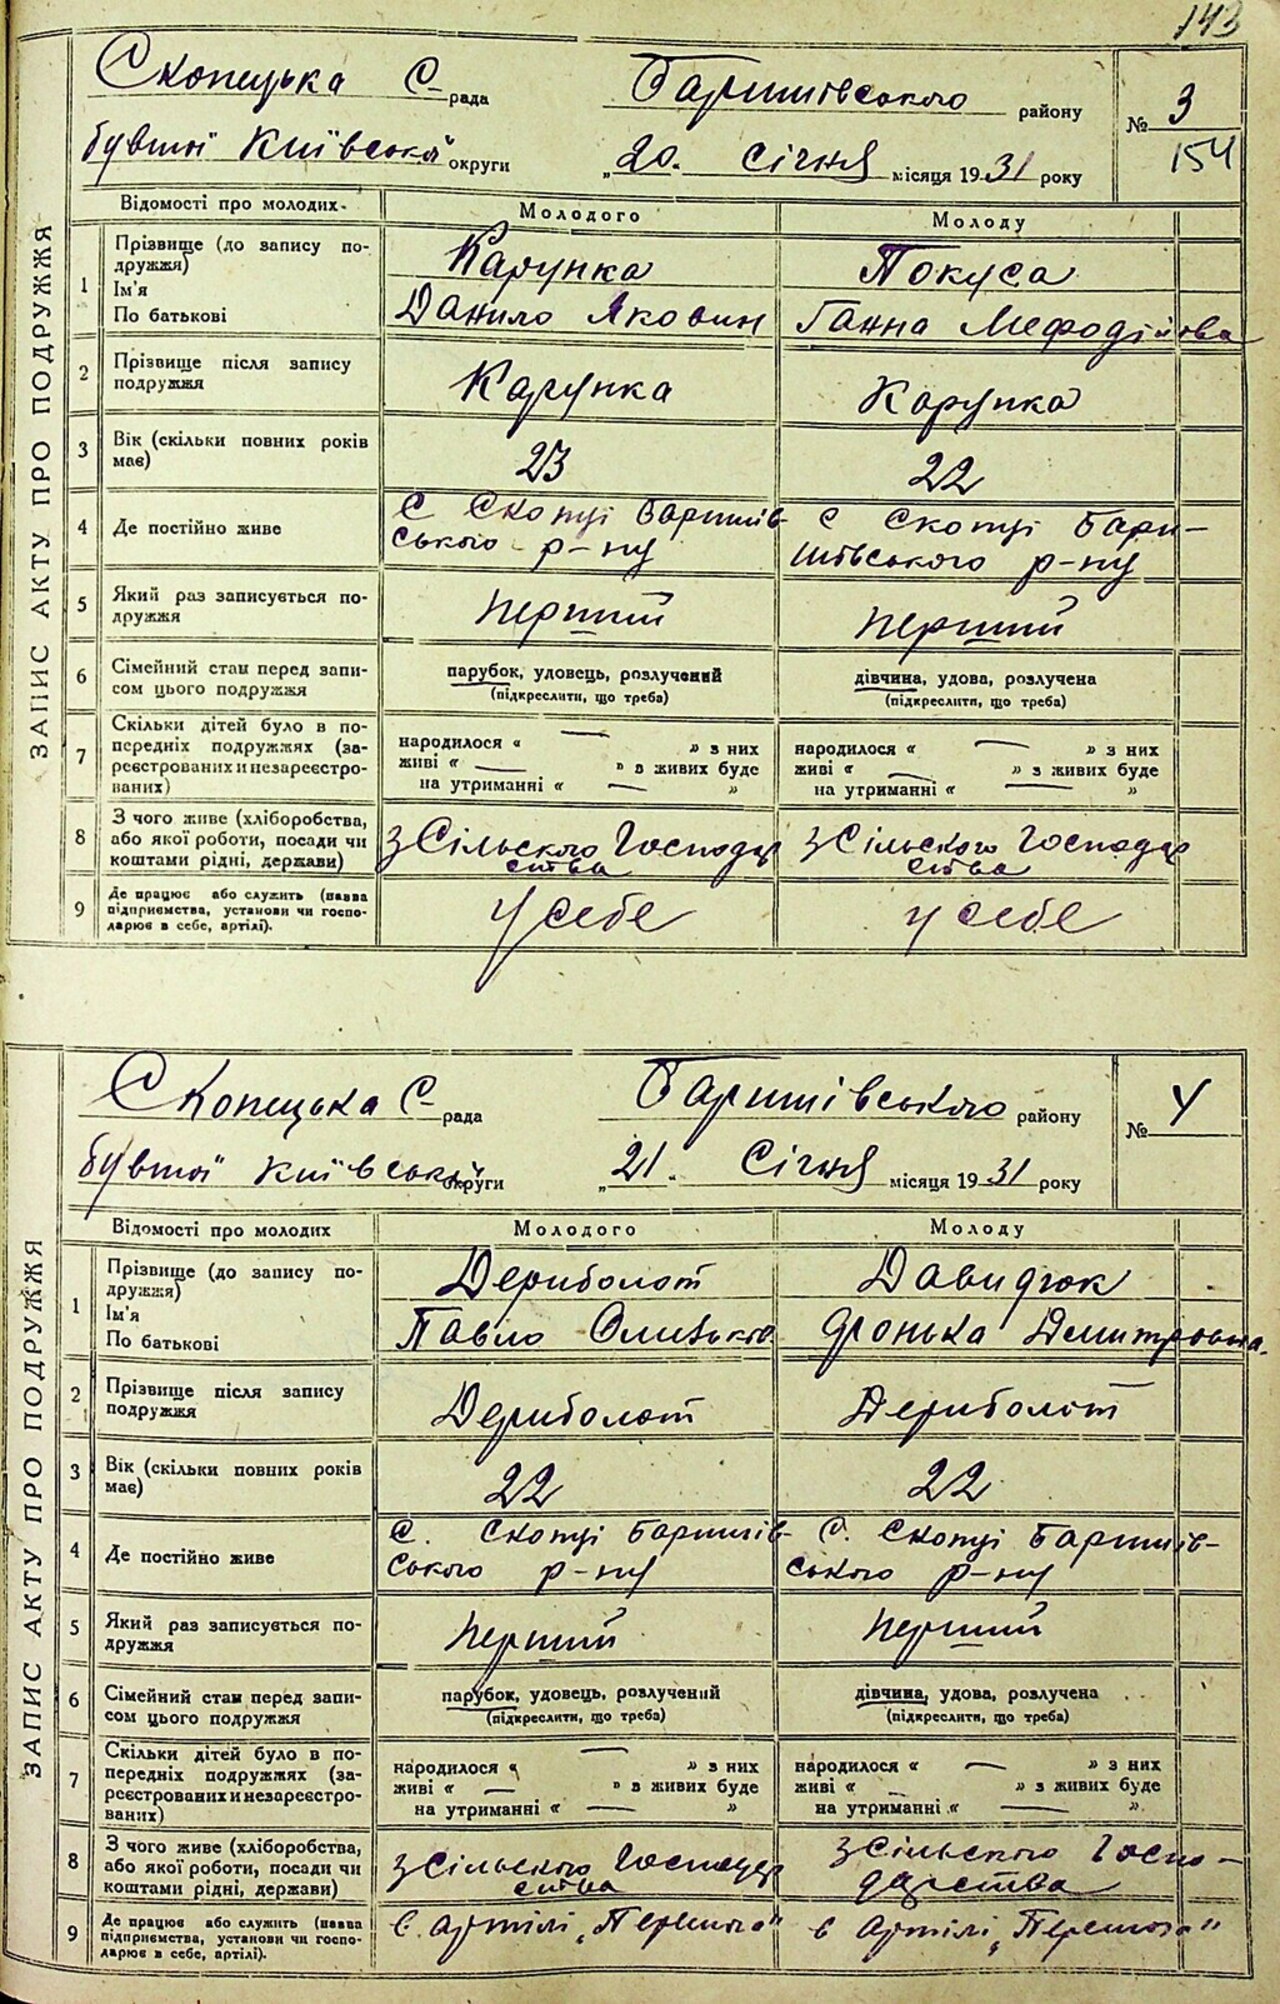 143
Скопецька С- рада Баришівського району № 3
бувшої Київської округи „20" Січня місяця 1931 року 154
ЗАПИС АКТУ ПРО ПОДРУЖЖЯ
Відомості про молодих Молодого Молоду
1 Прізвище (до запису по-
дружжя) Карупка Покуса
Ім'я
По батькові Данило Яковин Ганна Мефодіїова
2 Прізвище після запису
подружжя Карупка Карупка
3 Вік (скільки повних років
має) 23 22
4 Де постійно живе С Скопці Баришів- С Скопці Бари-
ського р-ну шівського р-ну
5 Який раз записується по-
дружжя перший перший
6 Сімейний стан перед запи- парубок, удовець, розлучений дівчина, удова, розлучена
сом цього подружжя (підкреслити, що треба) (підкреслити, що треба)
7 Скільки дітей було в по-
передніх подружжях (за-
реєстрованих и незареєстро-
ваних)
народилося « — » з них народилося « — » з них
живі « — » в живих буде живі « — » з живих буде
на утриманні « — » на утриманні « — »
8 З чого живе (хліборобства,
або якої роботи, посади чи
коштами рідні, держави)
з Сільського Господар з Сільського Господар
ства ства
9 Де працює або служить (назва
підприємства, установи чи госпо-
дарює в себе, артілі).
у себе у себе
Скопецька С- рада Баришівського району № 4
бувшої Київської округи „21" Січня місяця 1931 року
ЗАПИС АКТУ ПРО ПОДРУЖЖЯ
Відомості про молодих Молодого Молоду
1 Прізвище (до запису по-
дружжя) Дериболот Давидюк
Ім'я
По батькові Павло Демитровна.
2 Прізвище після запису
подружжя Дериболот Дериболот
3 Вік (скільки повних років
має) 22 22
4 Де постійно живе С. Скопці Баришів- С. Скопці Баришів-
ського р-ну ського р-ну
5 Який раз записується по-
дружжя перший перший
6 Сімейний стан перед запи- парубок, удовець, розлучений дівчина, удова, розлучена
сом цього подружжя (підкреслити, що треба) (підкреслити, що треба)
7 Скільки дітей було в по-
передніх подружжях (за-
реєстрованих и незареєстро-
ваних)
народилося « — » з них народилося « — » з них
живі « — » в живих буде живі « — » з живих буде
на утриманні « — » на утриманні « — »
8 З чого живе (хліборобства,
або якої роботи, посади чи
коштами рідні, держави)
з Сільського Господар з Сільського Госпо-
ства дарства
9 Де працює або служить (назва
підприємства, установи чи госпо-
дарює в себе, артілі).
в артілі „Перемога" в артілі „Перемога"